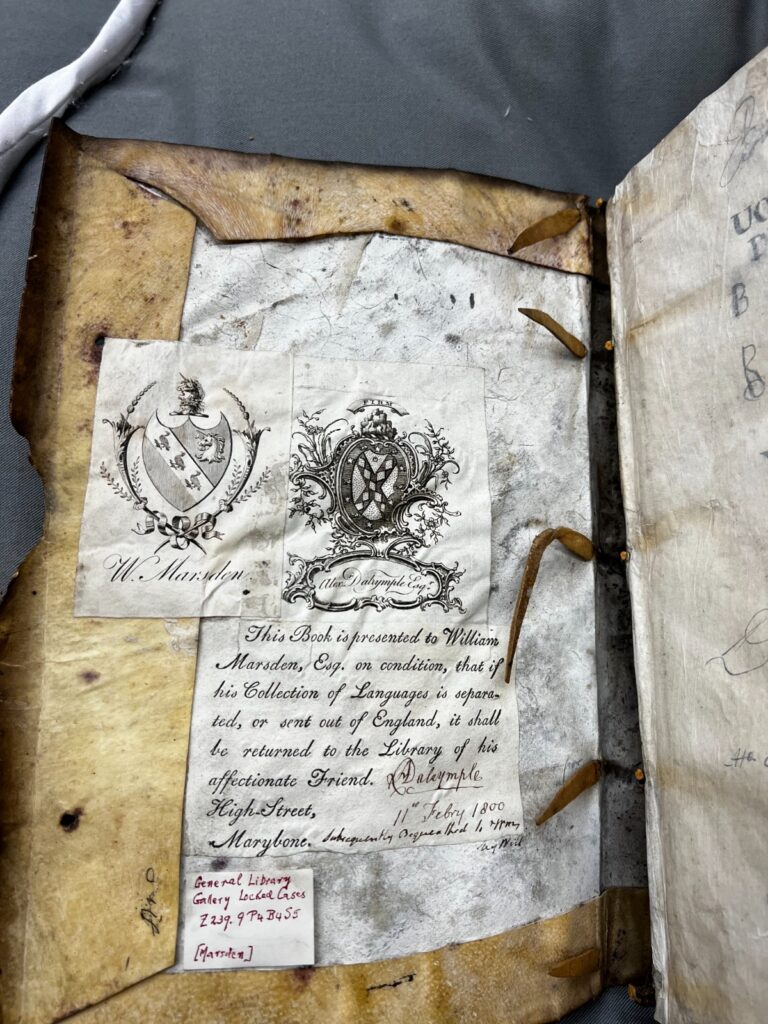 W. Marsden.
FIRM
Alex. Dalrymple Esqr.
This Book is presented to William
Marsden, Esq. on condition, that if
his Collection of Languages is separa-
ted, or sent out of England, it shall
be returned to the Library of his
affectionate Friend. Dalrymple
High-Street,
11th Febry 1800
Marybone. Subsequently bequeathed to
by Will
General Library
Gallery Locked Cases
Z239.9 P4 B4 S5
[Marsden]